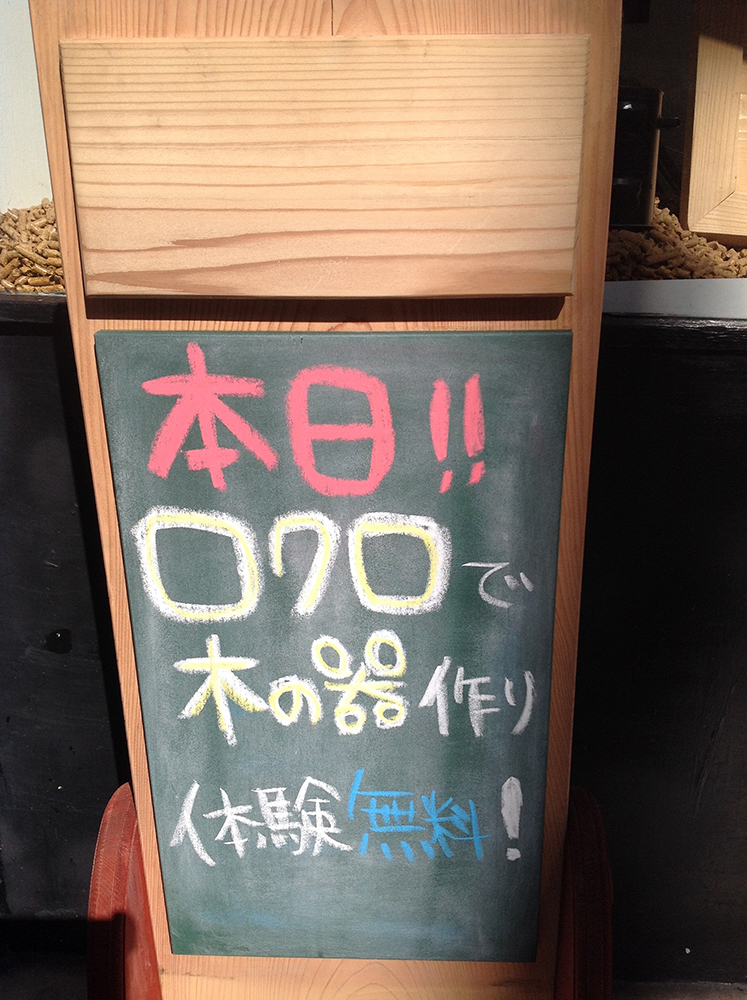 本日!!
ロクロで
木の器作り
体験無料!